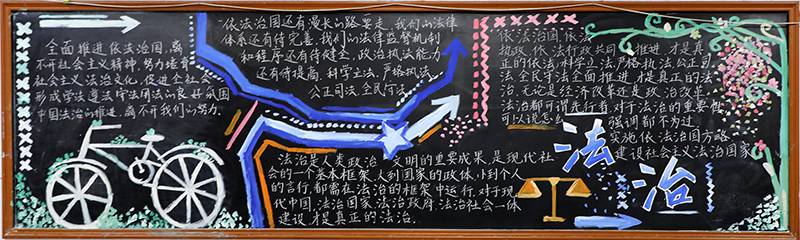 全面推进依法治国,离
不开社会主义精神,努力培育
社会主义法治文化,促进全社会
形成学法遵法守法用法的良好氛围
中国法治的推进,离不开我们的努力。
依法治国还有漫长的路要走,我们的法律
体系还有待完善,我们的法律监督机制
和程序还有待健全,政治执法能力
还有待提高,科学立法,严格执法,
公正司法全民守法
法治是人类政治文明的重要成果,是现代社
会的一个基本框架,大到国家的政体,小到个人
的言行,都需在法治的框架中运行,对于现
代中国,法治国家,法治政府,法治社会一体
建设,才是真正的法治.
依法治国,依法
执政,依法行政共同推进,才是真
正的依法,科学立法,严格执法,公正司
法,全民守法全面推进,才是真正的法
治,无论是经济改革还是政治改革,
法治都可谓先行者,对于法治的重要性
可以说怎么强调都不为过
实施依法治国方略
建设社会主义法治国家
法
治